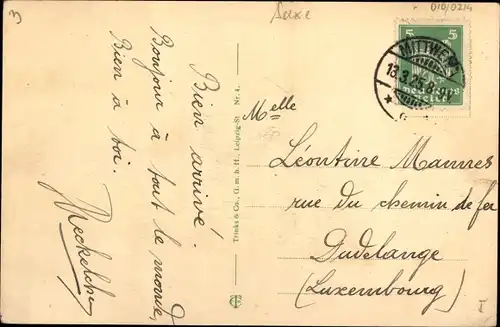 3
Saxe
010/0214
5 5
MITTWEIDA
13.3.25.8-9V
Bien arrivé!
Bonjour à tout le monde,
Bien à toi.
Trinks & Co., G. m. b. H., Leipzig-St Nr. 4.
Melle
Léontine Mannes
rue du chemin de fer
Dudelange
(Luxembourg)
I